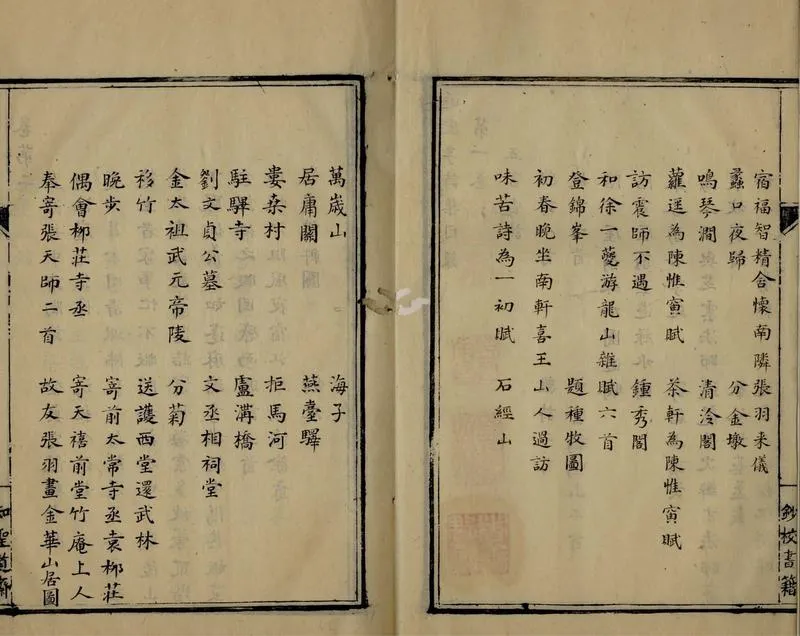 宿福智精舍懷南隣張羽来儀
蠡口夜歸 分金墩
鳴琴澗 清泠閣
蘿逕為陳惟寅賦 茶軒為陳惟寅賦
訪震師不遇 鍾秀閣
和徐一夔游龍山雜賦六首
登錦峯 題種牧圖
初春晚坐南軒喜王山人過訪
味苦詩為一初賦 石經山
鈔校書籍
萬歲山 海子
居庸關 燕臺驛
婁桑村 拒馬河
駐驆寺 盧溝橋
劉文貞公墓 文丞相祠堂
金太祖武元帝陵 分菊
移竹 送護西堂還武林
晚步 寄前太常寺丞袁柳莊
偶會柳莊寺丞 寄天禧前堂竹庵上人
奉寄張天師二首 故友張羽畫金華山居圖
知聖道齋